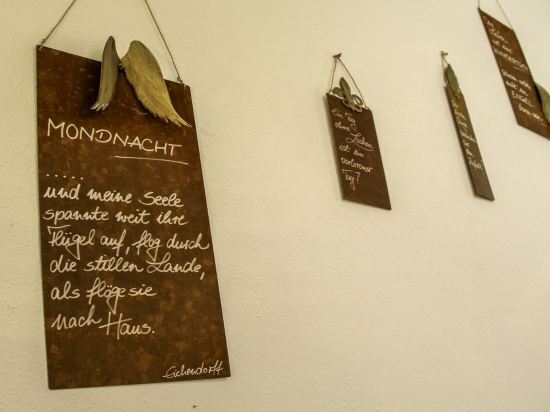 MONDNACHT
.....
und meine Seele
spannte weit ihre
Flügel auf, flog durch
die stillen Lande,
als flöge sie
nach Haus.
Eichendorff
Ein Tag
ohne Lachen
ist ein
verlorener
Tag?
ist ein
ENGEL